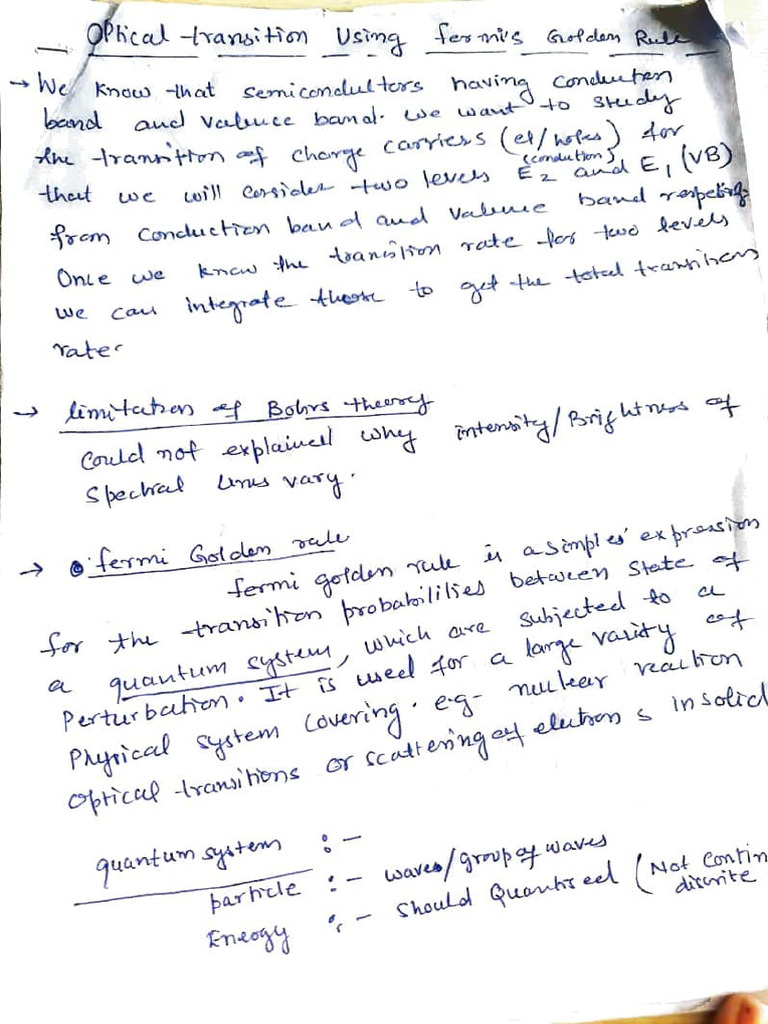 Optical transition Using fermi's Golden Rule
→ We know that semiconductors having conduction
band and valence band. we want to study
the transition of charge carriers (el/holes) for
that we will consider two levels E2 (conduction) and E1 (VB)
from conduction band and valence band respeting
Once we know the transition rate for two levels
we can integrate those to get the total transitions
rate.
→ limitation of Bohrs theory
Could not explained why intensity/Brightness of
Spectral lines vary.
→ fermi Golden rule
fermi golden rule is a simples expression
for the transition probabilities between state of
a quantum system, which are subjected to a
Perturbation. It is used for a large varity of
Physical system covering. e.g- nuclear reaction
optical transitions or scattering of electrons in solid
quantum system :-
particle :- waves/group of waves
Energy :- Should Quantised (Not Contin
discrite